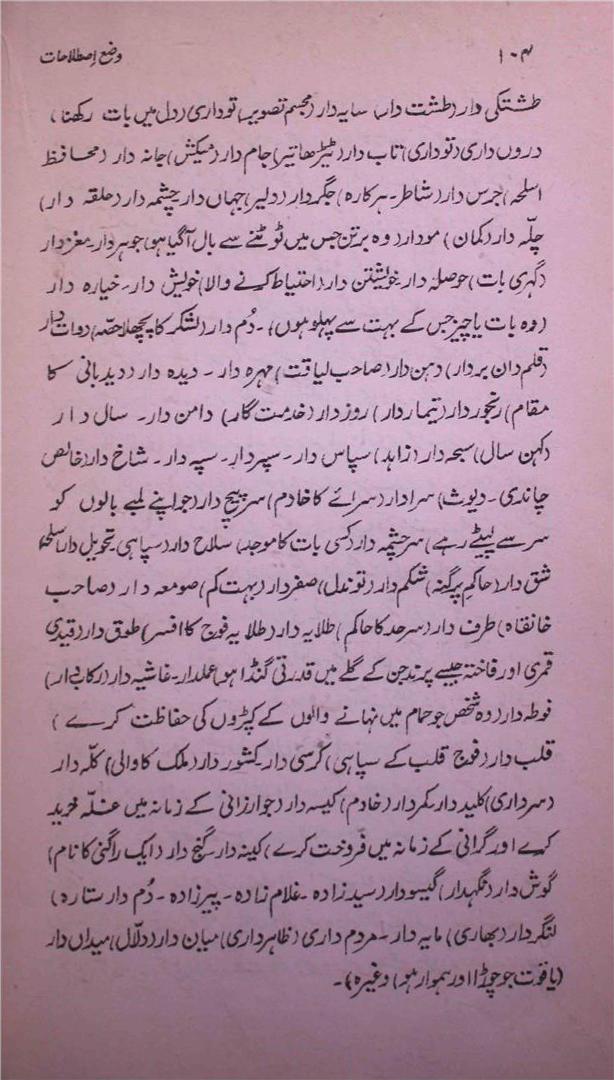 ۱۰۴
وضعِ اِصطلاحات
طشتکی دار (طشت دار) سایہ دار (مجسم تصویر) توداری (دل میں بات رکھنا)
دروں داری (توداری) تاب دار (ٹیڑھا تیر) جام دار (میکش) جانہ دار (محافظ
اسلحہ) جرس دار (شاطر۔ ہرکارہ) جگردار (دلیر) جہاں دار۔ چشمہ دار (حلقہ دار)
چلّہ دار (کمان) مودار (وہ برتن جس میں ٹوٹنے سے بال آگیا ہو) جوہردار۔ مغزدار
(گہری بات) حوصلہ دار۔ خویشتن دار (احتیاط کرنے والا) خویش دار۔ خیارہ دار
(وہ بات یا چیز جس کے بہت سے پہلو ہوں)۔ دُم دار (لشکر کا پچھلا حصّہ) دوات دار
(قلم دان بردار) دہن دار (صاحب لیاقت) مہرہ دار۔ دیدہ دار (دیدبانی کا
مقام) رنجوردار (تیماردار) روزدار (خدمت گار) دامن دار۔ سال دار
(کہن سالی) سبحہ دار (زاہد) سپاس دار۔ سپردار۔ سپہ دار۔ شاخ دار (خالص
چاندی۔ دیوث) سرادار (سرائے کا خادم) سرپیچ دار (جو اپنے لمبے بالوں کو
سر سے لپیٹے رہے) سرچشمہ دار (کسی بات کا موجد) سلاح دار (سپاہی۔ تحویل دار اسلحہ)
شق دار (حاکم پرگنہ) شکم دار (توندل) صفردار (بہت کم) صومعہ دار (صاحب
خانقاہ) طرف دار (سرحد کا حاکم) طلایہ دار (طلایہ فوج کا افسر) طوق دار (قیدی
قمری اور فاختہ جیسے پرند جن کے گلے میں قدرتی گنڈا ہو) عملدار۔ غاشیہ دار (رکاب دار)
فوطہ دار (وہ شخص جو حمام میں نہانے والوں کے کپڑوں کی حفاظت کرے)
قلب دار (فوج قلب کے سپاہی) کرسی دار۔ کشور دار (ملک کا والی) کلّہ دار
(سرداری) کلید دار۔ کمردار (خادم) کیسہ دار (جو ارزانی کے زمانہ میں غلّہ خرید
کرے اور گرانی کے زمانہ میں فروخت کرے) کینہ دار۔ گنج دار (ایک راگنی کا نام)
گوش دار (نگہدار) گیسودار (سید زادہ۔ غلام زادہ۔ پیرزادہ۔ دُم دار ستارہ)
لنگردار (بھاری) مایہ دار۔ مردم داری (ظاہرداری) میان دار (دلّال) میداں دار
(یاقوت جو چوڑا اور ہموار ہو) وغیرہ)۔